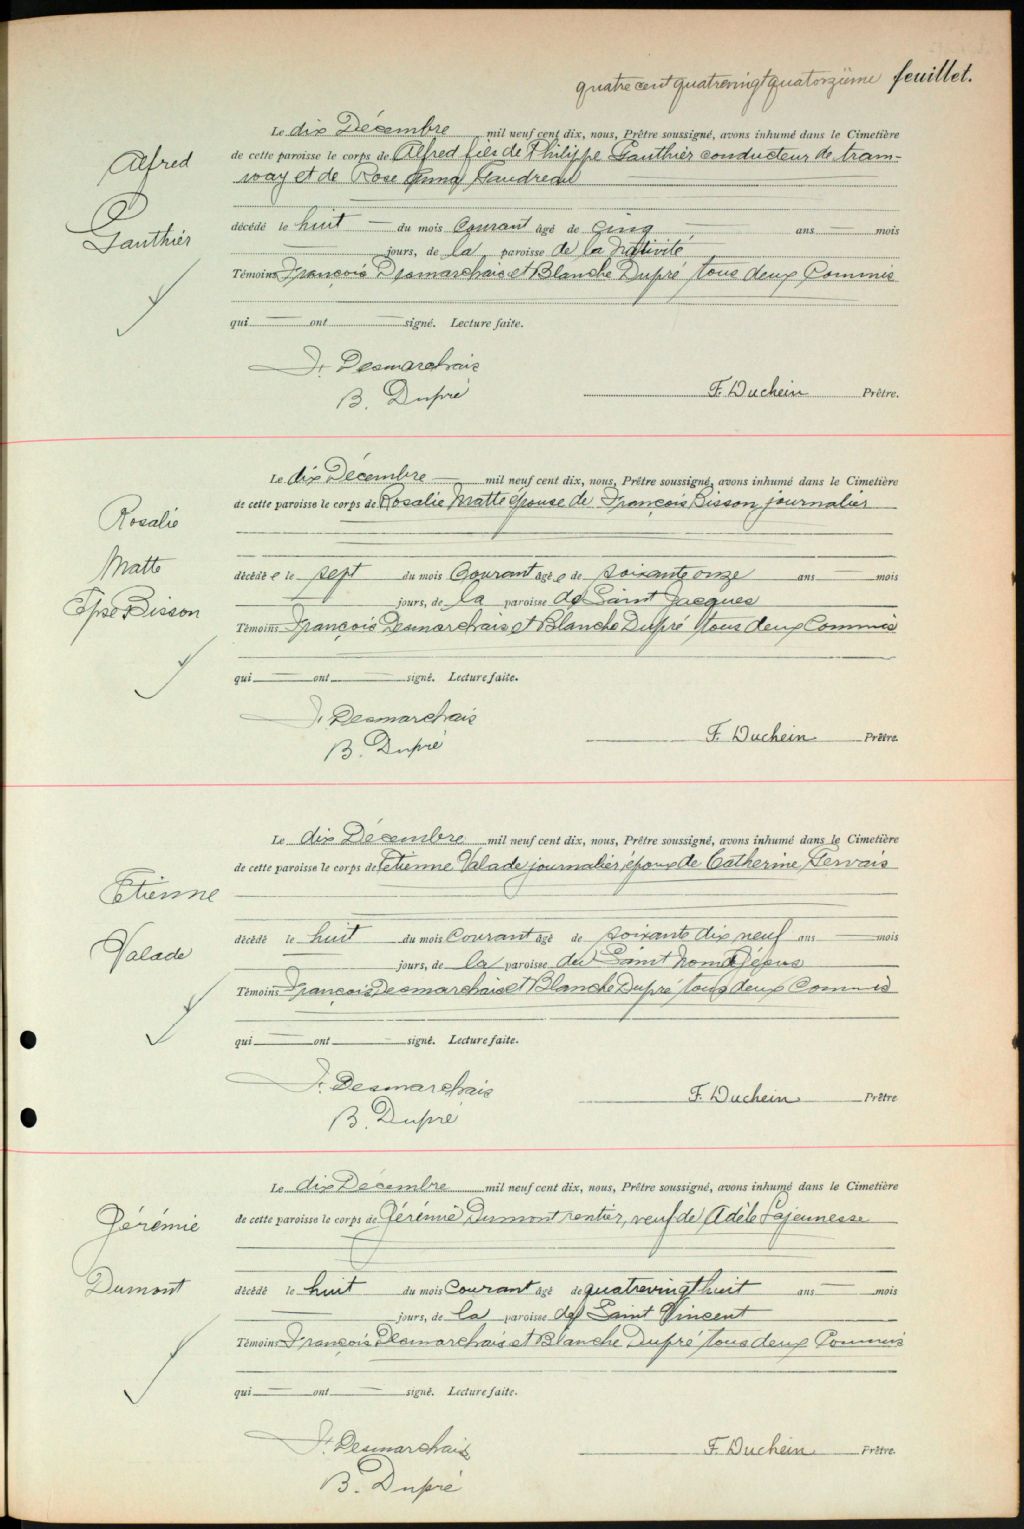 quatre cent quatrevingtquatorzième feuillet.
Le dix Décembre mil neuf cent dix, nous, Prêtre soussigné, avons inhumé dans le Cimetière
Alfred
de cette paroisse le corps de Alfred fils de Philippe Gauthier conducteur de tram-
way et de Rose Anna Gaudreau
Gauthier
décédé le huit — du mois Courant âgé de cinq ans — mois
— jours, de la paroisse de la Nativité
Témoins François Desmarchais et Blanche Dupré tous deux Commis
qui — ont — signé. Lecture faite.
F. Desmarchais
B. Dupré
F. Duchein Prêtre.
Le dix Décembre — mil neuf cent dix, nous, Prêtre soussigné, avons inhumé dans le Cimetière
de cette paroisse le corps de Rosalie Matte épouse de François Bisson journalier
Rosalie
Matte
Epse Bisson
décédée le sept du mois Courant âgée de soixante onze ans — mois
— jours, de la paroisse de Saint Jacques
Témoins François Desmarchais et Blanche Dupré tous deux Commis
qui — ont — signé. Lecture faite.
F. Desmarchais
B. Dupré
F. Duchein Prêtre.
Le dix Décembre mil neuf cent dix, nous, Prêtre soussigné, avons inhumé dans le Cimetière
de cette paroisse le corps de Etienne Valade journalier, époux de Catherine Gervais
Etienne
Valade
décédé le huit du mois Courant âgé de soixante dix neuf ans — mois
— jours, de la paroisse du Saint Nom de Jésus
Témoins François Desmarchais et Blanche Dupré tous deux Commis
qui — ont — signé. Lecture faite.
F. Desmarchais
B. Dupré
F. Duchein Prêtre
Le dix Décembre mil neuf cent dix, nous, Prêtre soussigné, avons inhumé dans le Cimetière
de cette paroisse le corps de Jérémie Dumont rentier, veuf de Adèle Lajeunesse
Jérémie
Dumont
décédé le huit du mois Courant âgé de quatrevingthuit ans — mois
— jours, de la paroisse de Saint Vincent
Témoins François Desmarchais et Blanche Dupré tous deux Commis
qui — ont — signé. Lecture faite.
F. Desmarchais
B. Dupré
F. Duchein Prêtre.